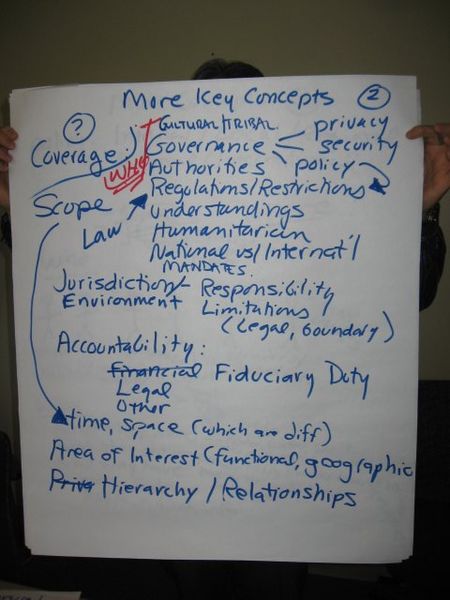 More Key Concepts 2
?
CULTURAL/TRIBAL
Coverage: Governance privacy
security
WHO Authorities policy
Regulations/Restrictions
Scope understandings
Law Humanitarian
National vs/Internat'l
MANDATES
Jurisdiction/ Responsibility
Environment Limitations
(Legal, boundary)
Accountability:
Financial Fiduciary Duty
Legal
Other
time, space (which are diff)
Area of Interest (functional, geographic
Priva Hierarchy / Relationships